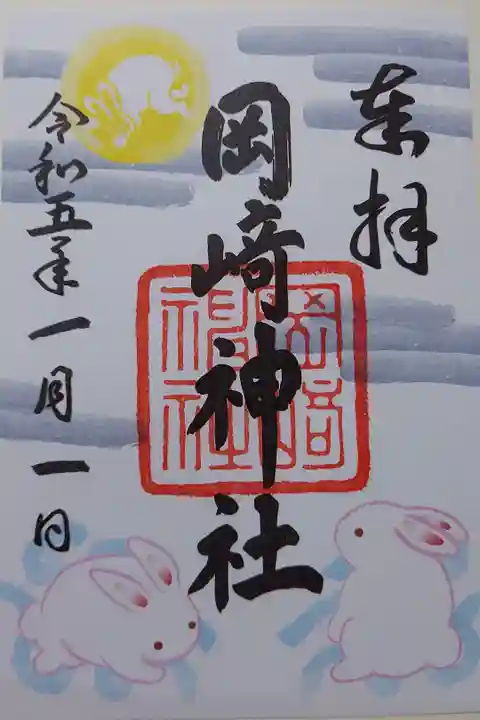 奉拝
岡﨑神社
岡崎神社
令和五年一月一日